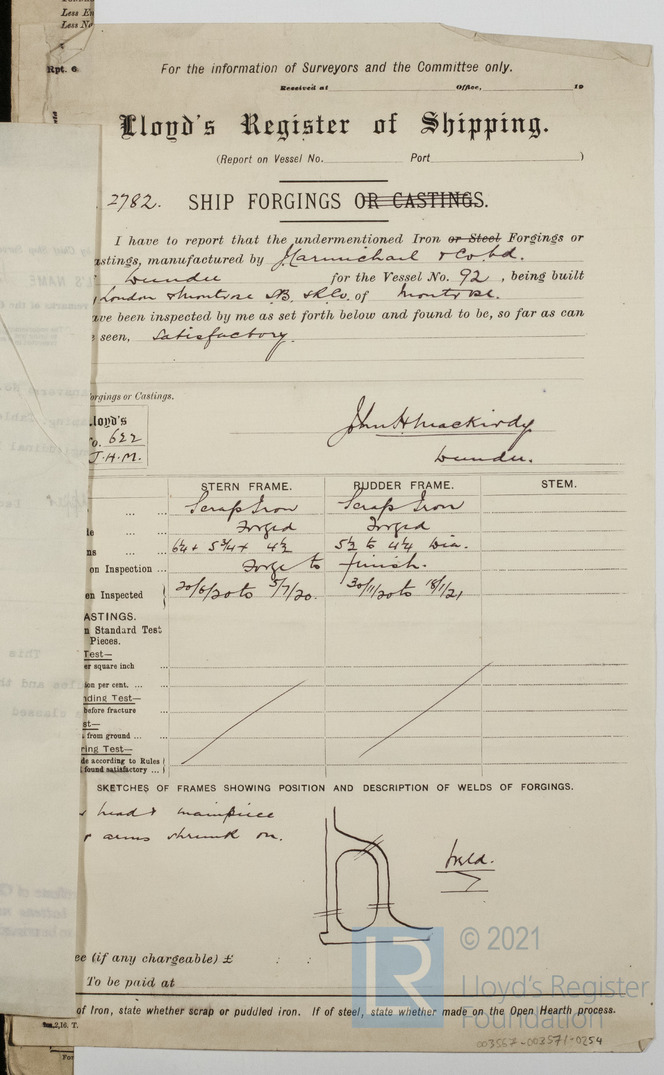 Less
Less
Rpt. 6.
For the information of Surveyors and the Committee only.
Received at Office, 19
Lloyd's Register of Shipping.
(Report on Vessel No. Port )
2782. SHIP FORGINGS OR CASTINGS.
I have to report that the undermentioned Iron or Steel Forgings or
astings, manufactured by J Carmichael & Co Ltd.
Dundee for the Vessel No. 92, being built
London & Montrose SB. & R Co. of Montrose.
ave been inspected by me as set forth below and found to be, so far as can
seen, Satisfactory.
orgings or Castings.
loyd's
o. 622
J.H.M.
John H Mackirdy
Dundee.
STERN FRAME. RUDDER FRAME. STEM.
Scrap Iron Scrap Iron
Forged Forged
6¼ + 5¾ + 4½ 5½ to 4¼ Dia.
on Inspection ... Forge to finish.
en Inspected 20/6/20 to 5/7/20. 30/11/20 to 18/1/21
ASTINGS.
n Standard Test
Pieces.
Test—
er square inch
ion per cent. ...
nding Test—
before fracture
st—
from ground ...
ring Test—
de according to Rules
found satisfactory ...
SKETCHES OF FRAMES SHOWING POSITION AND DESCRIPTION OF WELDS OF FORGINGS.
head & mainpiece
arms shrunk on.
Weld.
ee (if any chargeable) £ : :
To be paid at
of Iron, state whether scrap or puddled iron. If of steel, state whether made on the Open Hearth process.
2,16. T.
LR
© 2021
Lloyd's Register
Foundation
003567-003571-0254